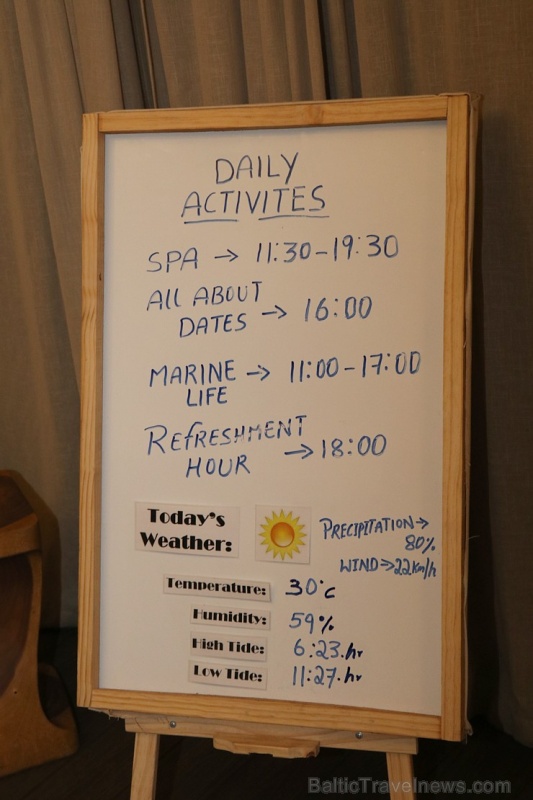 DAILY
ACTIVITES
SPA → 11:30-19:30
All ABOUT
DATES → 16:00
MARINE → 11:00-17:00
LIFE
REfRESHMENT
HOUR → 18:00
Today's
Weather:
PRECIPITATION→
80%
WIND→22km/h
Temperature: 30°c
Humidity: 59%
High Tide: 6:23.hr
Low Tide: 11:27.hr
BalticTravelnews.com